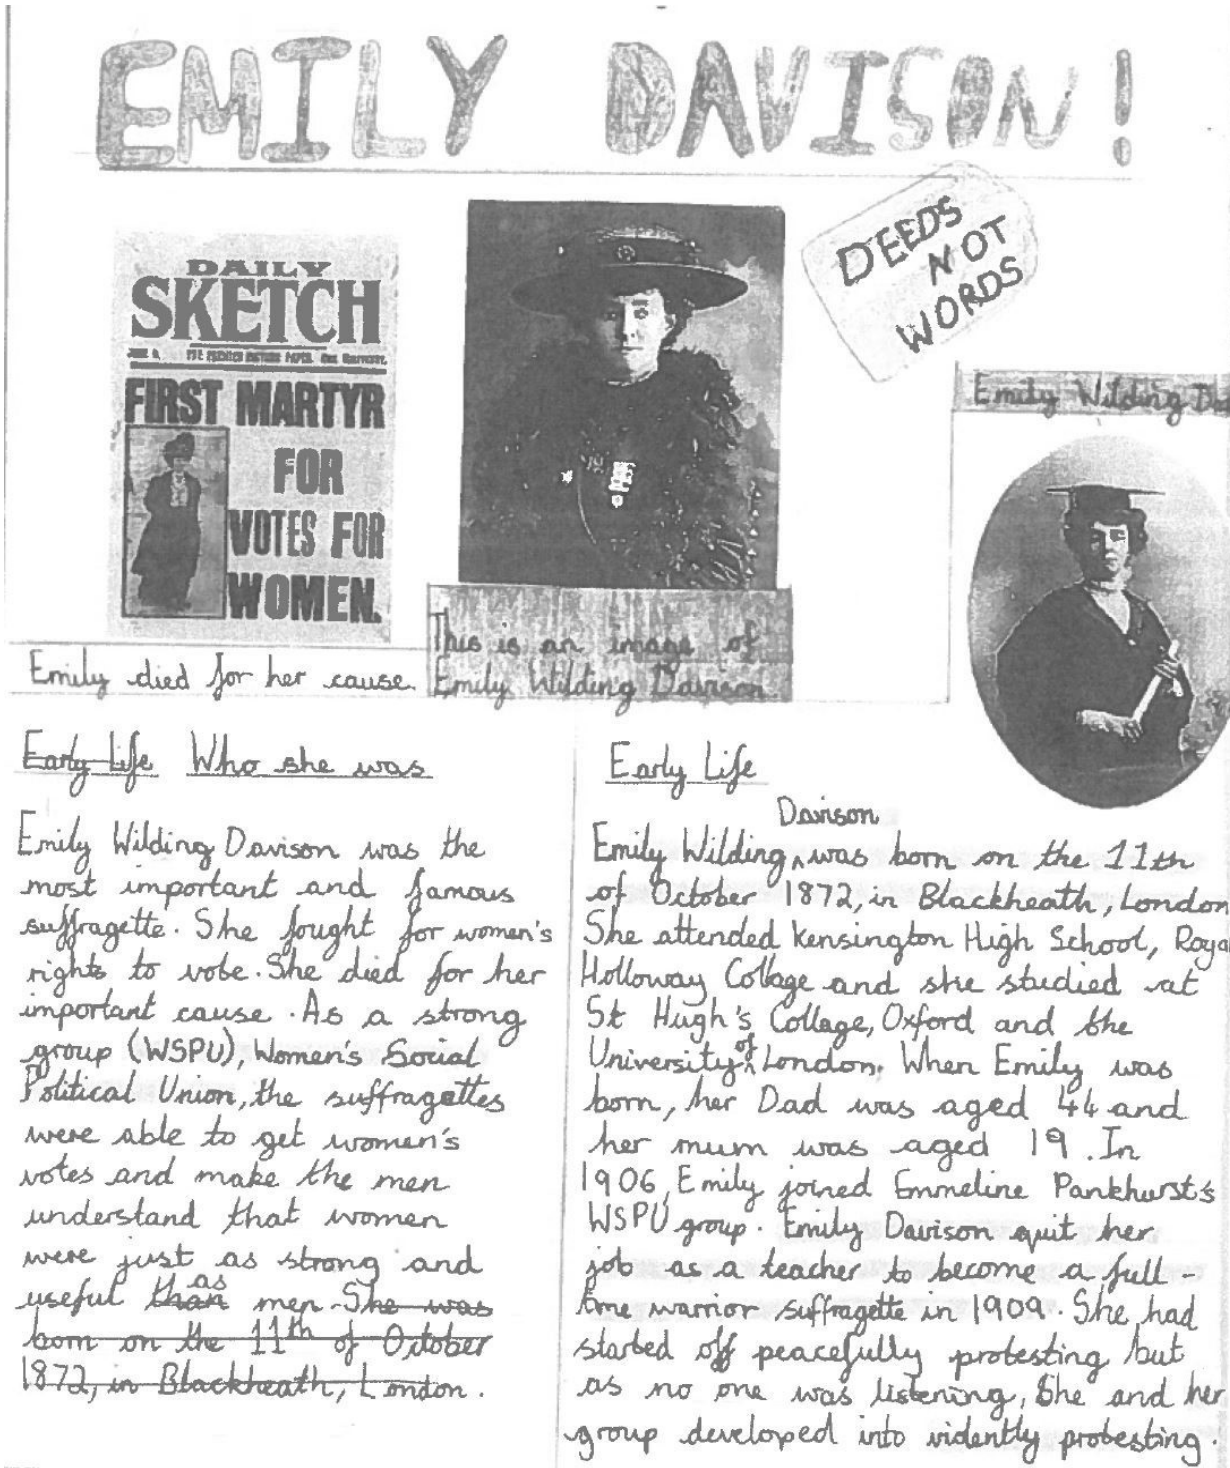 EMILY DAVISON!
DEEDS
NOT
WORDS
DAILY
SKETCH
FIRST MARTYR
FOR
VOTES FOR
WOMEN.
Emily Wilding Da
Emily died for her cause.
This is an image of
Emily Wilding Davison
Early Life Who she was
Emily Wilding Davison was the
most important and famous
suffragette. She fought for women's
rights to vote. She died for her
important cause. As a strong
group (WSPU), Women's Social
Political Union, the suffragettes
were able to get women's
votes and make the men
understand that women
were just as strong and
useful than as men. She was
born on the 11th of October
1872, in Blackheath, London.
Early Life
Davison
Emily Wilding ^ was born on the 11th
of October 1872, in Blackheath, London
She attended Kensington High School, Roya
Holloway Collage and she studied at
St Hugh's Collage, Oxford and the
University of London. When Emily was
born, her Dad was aged 44 and
her mum was aged 19. In
1906, Emily joined Emmeline Pankhurst's
WSPU group. Emily Davison quit her
job as a teacher to become a full-
time warrior suffragette in 1909. She had
started off peacefully protesting but
as no one was listening, she and her
group developed into vidently protesting.